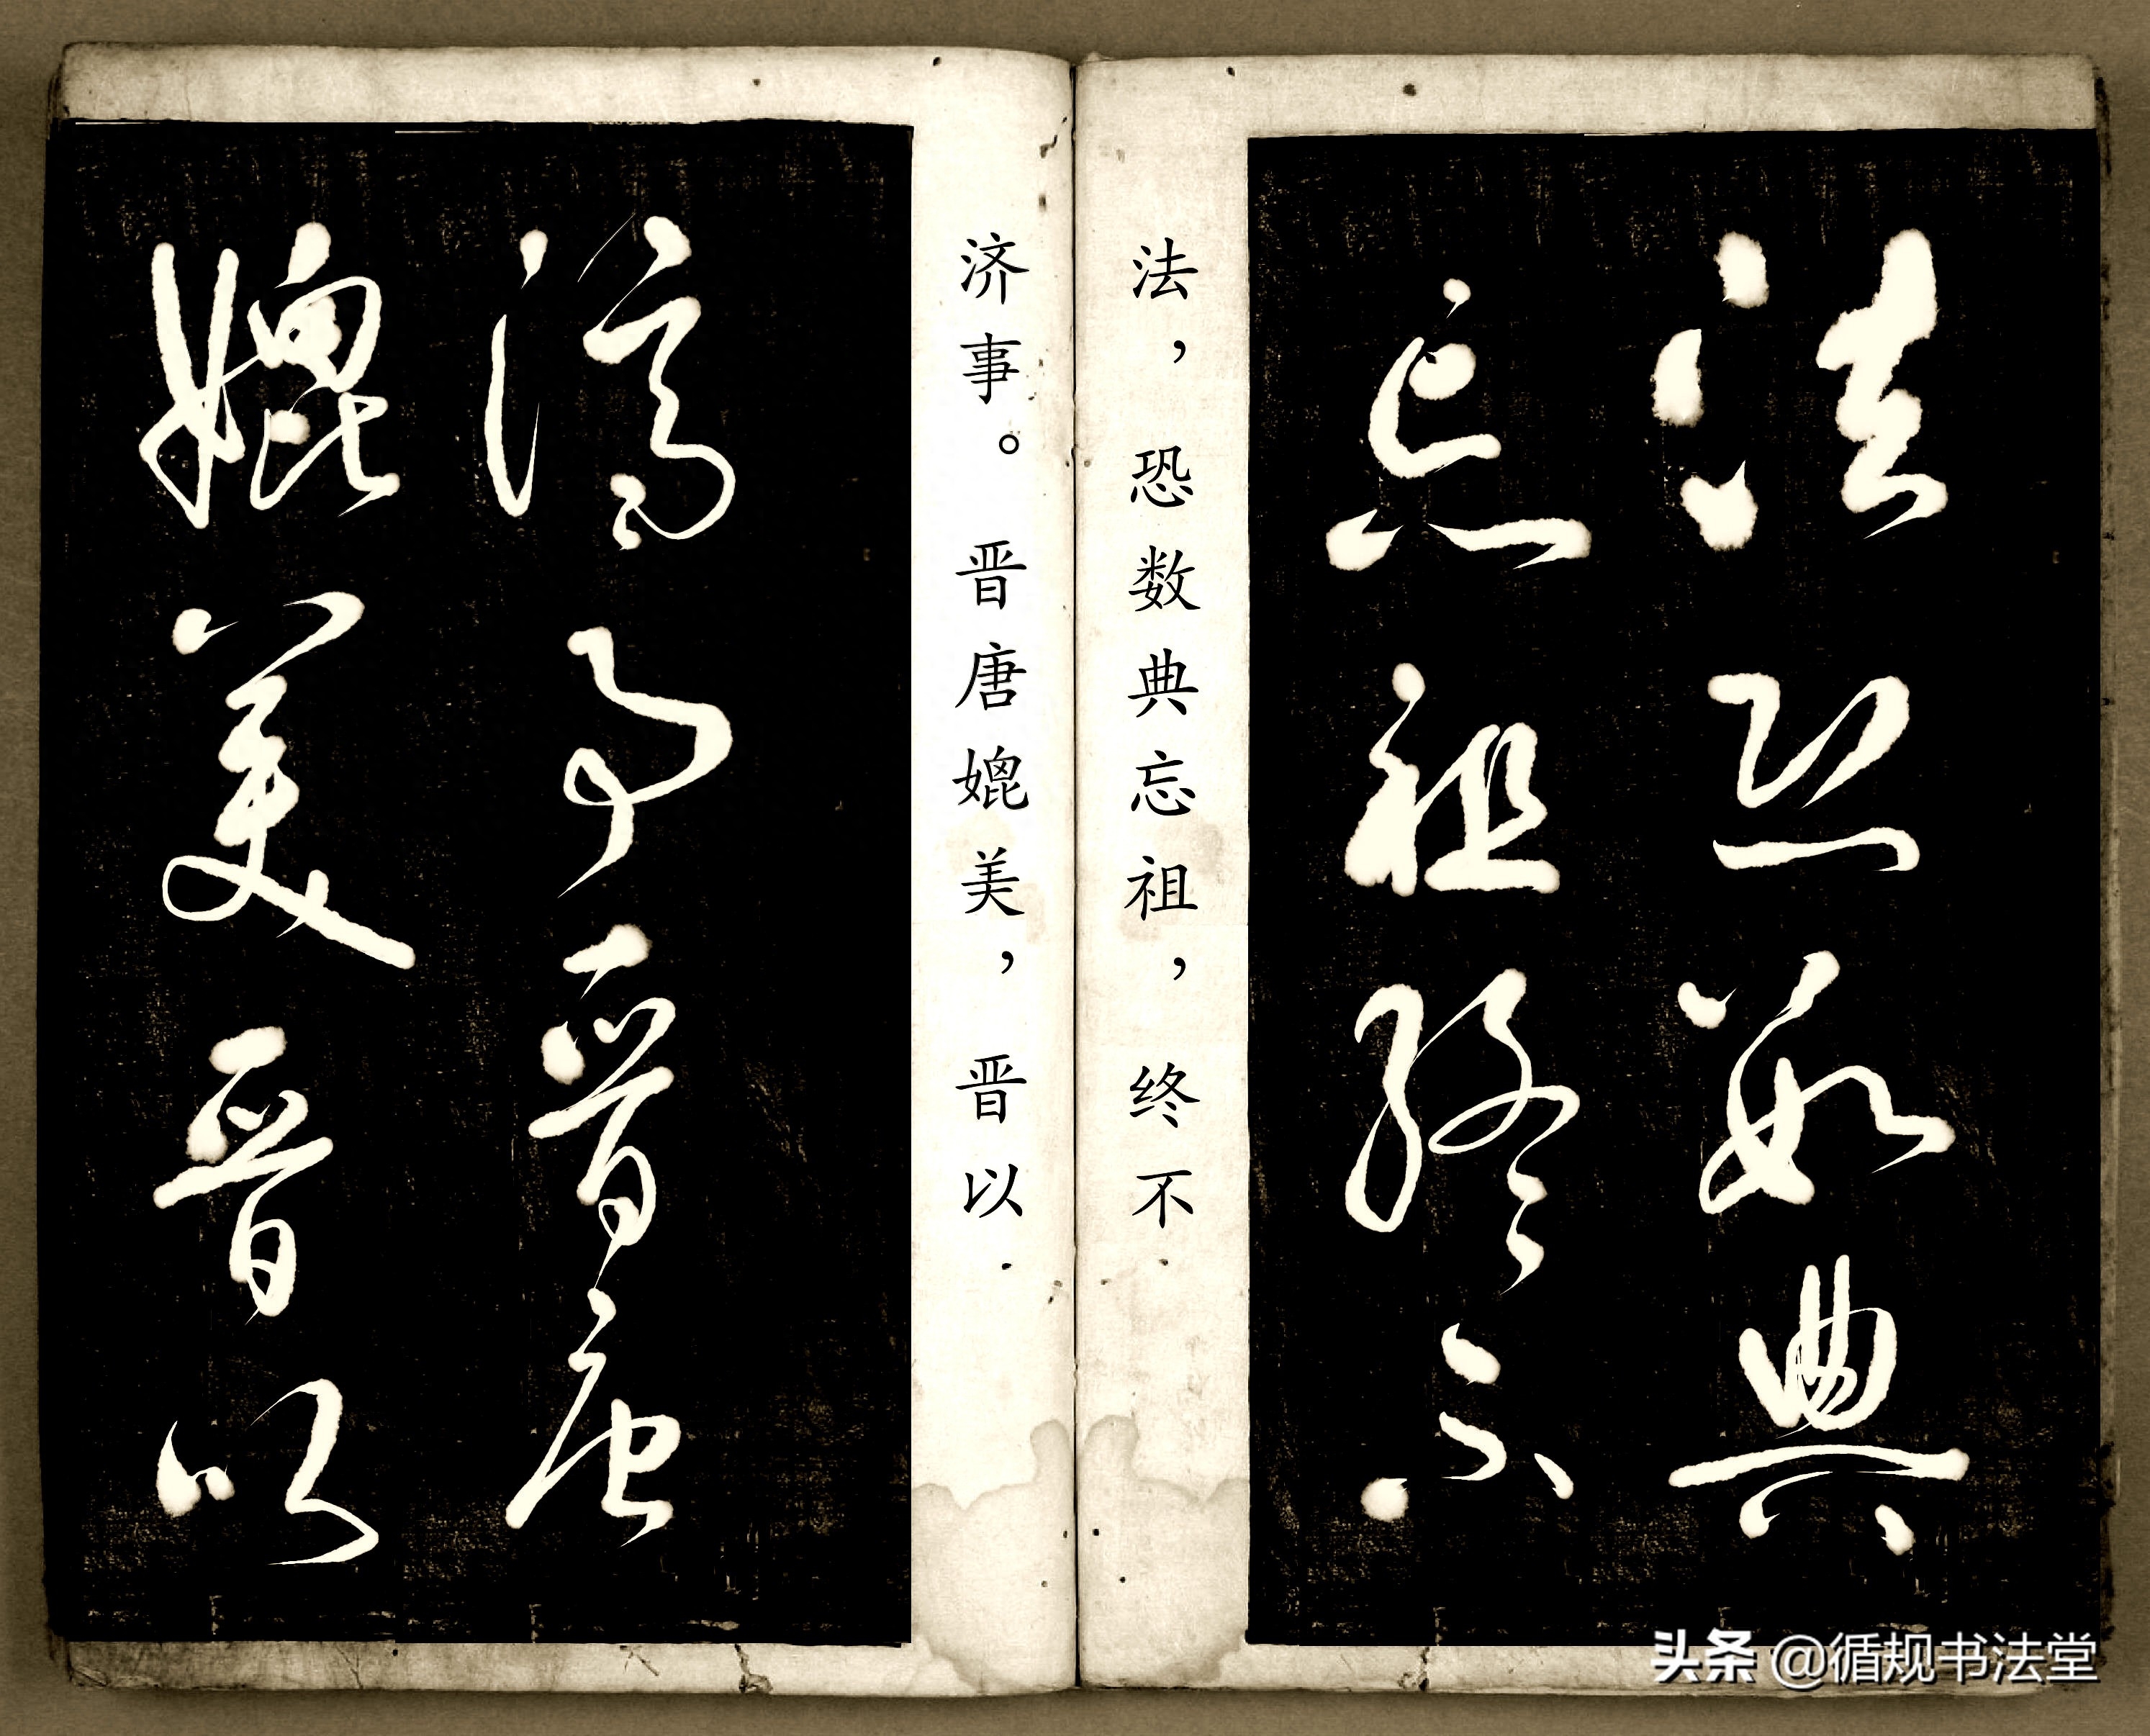 法恐数典
忘祖终不
法，恐数典忘祖，终不.
济事。晋唐媲美，晋以.
济事晋唐
媲美晋以
头条 @循规书法堂